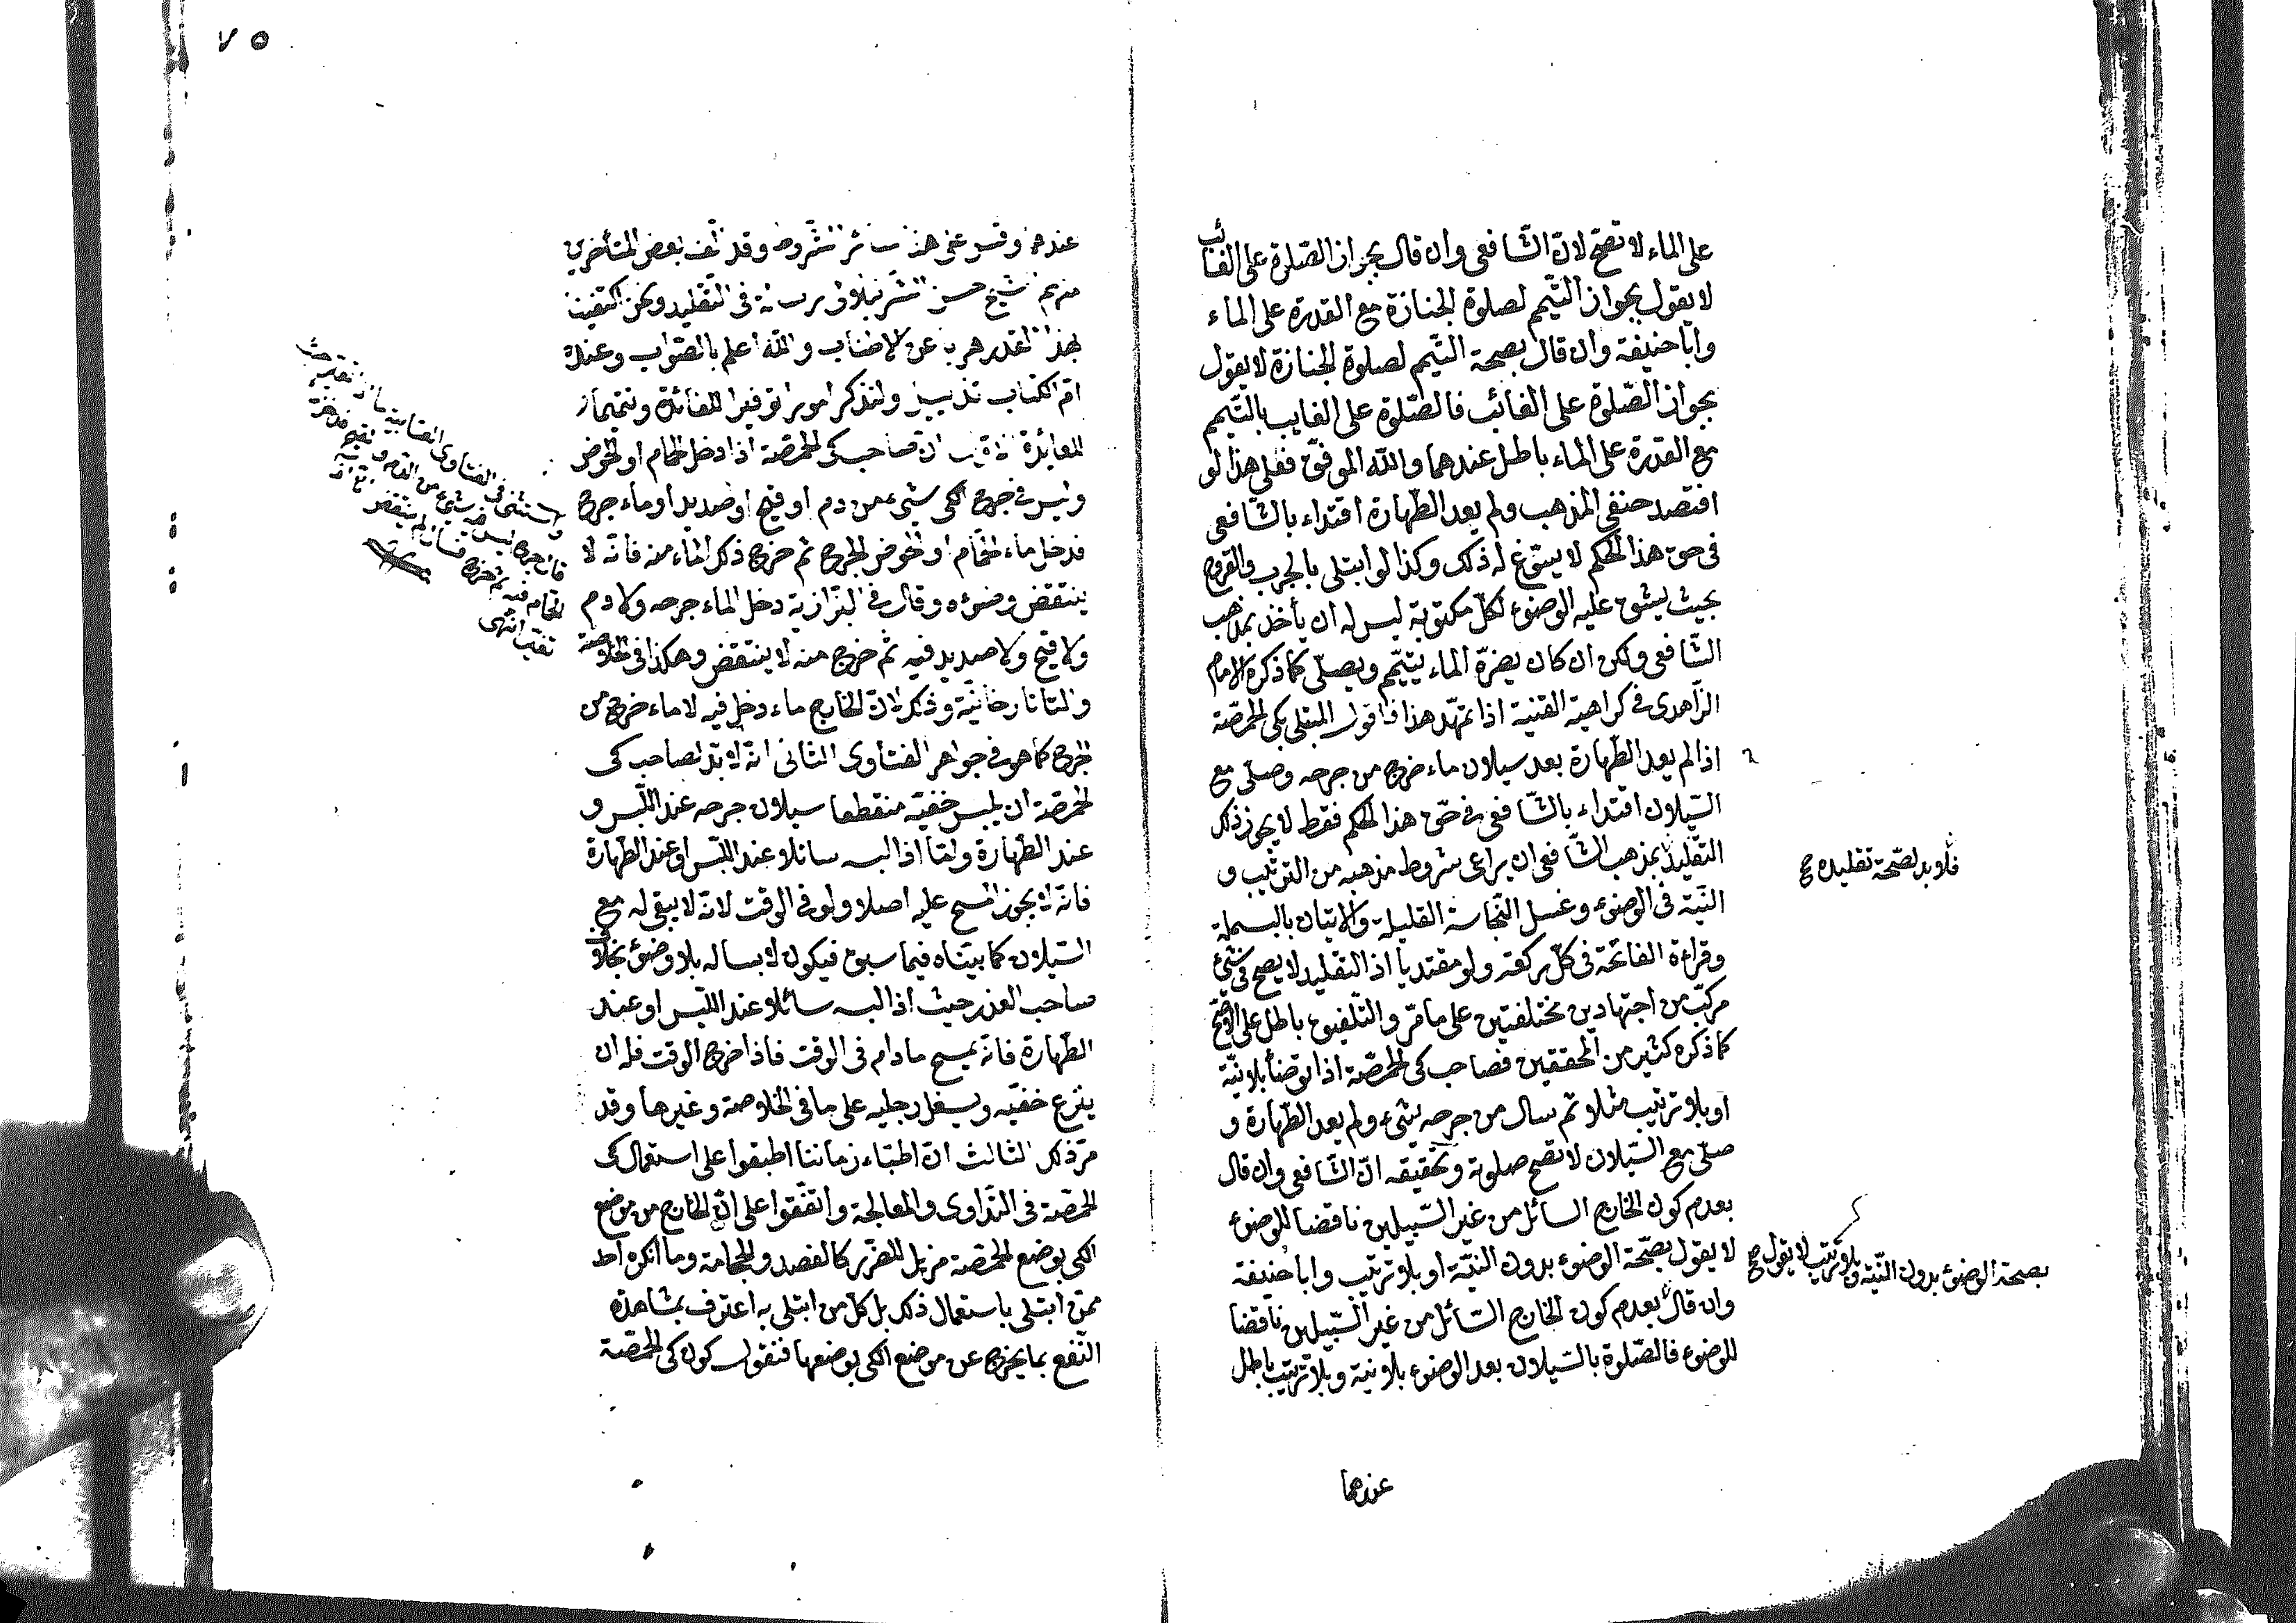 على الماء لا تصح لانّ الشّافعى وان قال بجواز الصّلوة على الغائب
لا يقول بجواز التّيمم لصلوة الجنازة مع القدرة على الماء
وابا حنيفة وان قال بصحة التّيمم لصلوة الجنازة لا يقول
بجواز الصّلوة على الغائب فالصّلوة على الغايب بالتّيمم
مع القدرة على الماء باطل عندهما والله الموفّق فعلى هذا لو
افتصد حنفى المذهب ولم يعد الطّهارة اقتداء بالشّافعى
فى حق هذا الحكم لا يسوّغ له ذلك وكذا لو ابتلى بالجرب والقروح
بحيث يشق عليه الوضوء لكلّ مكتوبة ليس له ان يأخذ بمذهب
الشّافعى ولكن ان كان يضرّه الماء يتيمّم ويصلّى كما ذكره الامام
الزّاهدى فى كراهية القنية اذا تمهّد هذا فاقول المبتلى بكى الحمّصة
اذا لم يعد الطّهارة بعد سيلان ماء خرج من جرحه وصلّى مع
السّيلان اقتداء بالشّافعى فى حقّ هذا الحكم فقط لا يجوز ذلك
التقليد بمذهب الشّافعى ان يراعى شروط مذهبه من الترتيب و
فلا بد لصحّة تقليده صح
النّيّة فى الوضوء وغسل النّجاسة القليلة والاتيان بالبسملة
وقراءة الفاتحة فى كلّ ركعة ولو مقتديا اذ التقليد لا يصح فى شئ
مركّب من اجتهادين مختلفتين على ما مرّ والتّلفيق باطل على الاصحّ
كما ذكره كثير من المحققين فصاحب كى الحمّصة اذا توضأ بلا نيّة
او بلا ترتيب مثلا ثم سال من جرحه شئ ولم يعد الطّهارة و
صلّى مع السّيلان لا تصح صلوته وتحقيقه انّ الشّافعى وان قال
بعدم كون الخارج السائل من غير السّبيلين ناقضا للوضوء
لا يقول بصحّة الوضوء بدون النيّة او بلا ترتيب وابا حنيفة
بصحة الوضوء بدون النّيّة وبلا ترتيب لا يقول صح
وان قال بعدم كون الخارج السّائل من غير السّبيلين ناقضا
للوضوء فالصّلوة بالسّيلان بعد الوضوء بلا نية وبلا ترتيب باطل
عندهما
٧٥
عندهما وقس على هذا سائر الشّروط وقد الف بعض المتأخرين
منهم الشيخ حسن الشّرنبلالى رسالة فى التّقليد ونحن اكتفينا
بهذا القدر هربا عن الاطناب والله اعلم بالصّواب وعنده
ام الكتاب تذييل ولنذكر امورا توفيرا للفائدة وتتميما
للعائدة ان صاحب كى الحمّصة اذا دخل الحمّام او الحوض
وليس فى جرح الكى شئ من دم او قيح او صديد او ماء جرح
فدخل ماء الحمّام او الحوض الجرح ثم خرج ذلك الماء منه فانّه لا
ينتقض وضوءه وقال فى البزّازية دخل الماء جرحه ولا دم
ولا قيح ولا صديد فيه ثم خرج منه لا ينتقض وهكذا فى الخلاصة
والتاتارخانيّة وذلك لانّ الخارج ماء دخل فيه لا ماء خرج من
الجرح كما هو فى جواهر الفتاوى الثانى انّه لا بدّ لصاحب كى
الحمّصة ان يلبس خفيّه منقطعا سيلان جرحه عند اللّبس و
عند الطّهارة وامّا اذا لبسه سائلا عند اللّبس او عند الطّهارة
فانّه لا يجوز المسح عليه اصلا ولو فى الوقت لانّه لا يبقى له مع
السّيلان كما بيّناه فيما سبق فيكون لابسا له بلا وضوء بخلاف
صاحب العذر حيث اذا لبسه سائلا عند اللّبس او عند
الطّهارة فانّه يمسح مادام فى الوقت فاذا خرج الوقت فله ان
ينزع خفّيه ويغسل رجليه على ما فى الخلاصة وغيرها وقد
مرّ ذلك الثالث انّ اطبّاء زماننا اطبقوا على استعمال كى
الحمّصة فى التّداوى والمعالجة واتّفقوا على انّ الخارج من موضع
الكى بوضع الحمّصة مزيل للضّرر كالفصد والحجامة وما انكره احد
ممّن ابتلى باستعمال ذلك بل كلّ من ابتلى به اعترف بمشاهدة
النّفع بما يخرج عن موضع الكى بوضعها فنقول كون كى الحمّصة
فى الفتاوى العتابية
شئ من الدم و القيح
ثم خرج لم ينتقض
انتهى